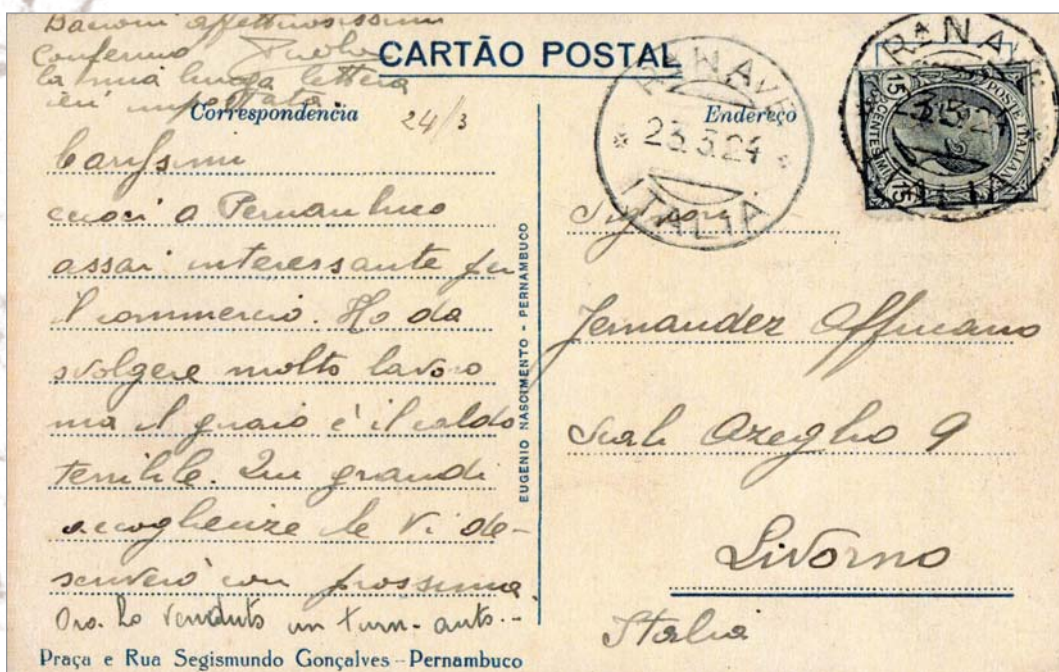 Bacioni affettuosissimi
Confermo
la mia lunga lettera
ieri impostata
CARTÃO POSTAL
Correspondencia
24/3
Carissimi
eccoci a Pernambuco
assai interessante per
il commercio. Ho da
svolgere molto lavoro
ma il guaio è il caldo
terribile. Qui grandi
accoglienze le Vi de-
scriverò con prossima.
Ora ho venduto un turn-auto.-
Praça e Rua Segismundo Gonçalves - Pernambuco
EUGENIO NASCIMENTO - PERNAMBUCO
R. NAVE
23.3.24
ITALIA
Endereço
R. NAVE
23.3.24
ITALIA
POSTE ITALIANE
15 CENTESIMI 15
Signori
Fernandez Affricano
Scali Azeglio 9
Livorno
Italia